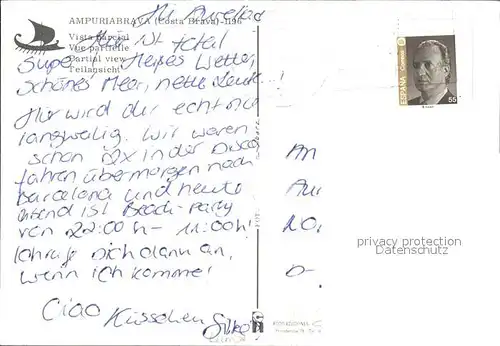 AMPURIABRAVA (Costa Brava) - 1196
Vista parcial
Vue partielle
Partial view
Teilansicht
Hi, Aurelia!
Hier ist total
super. Heißes Wetter,
schönes Meer, nette Leute!
Hier wird dir echt nie
langweilig. Wir waren
schon 2x in der Disco,
fahren übermorgen nach
Barcelona und heute
Abend ist Beach-Party
von 22:00h - 11:00h!
Ich rufe dich dann an,
wenn ich komme!
Ciao Küsschen
ESPAÑA
CORREOS
55
An
privacy protection
Datenschutz